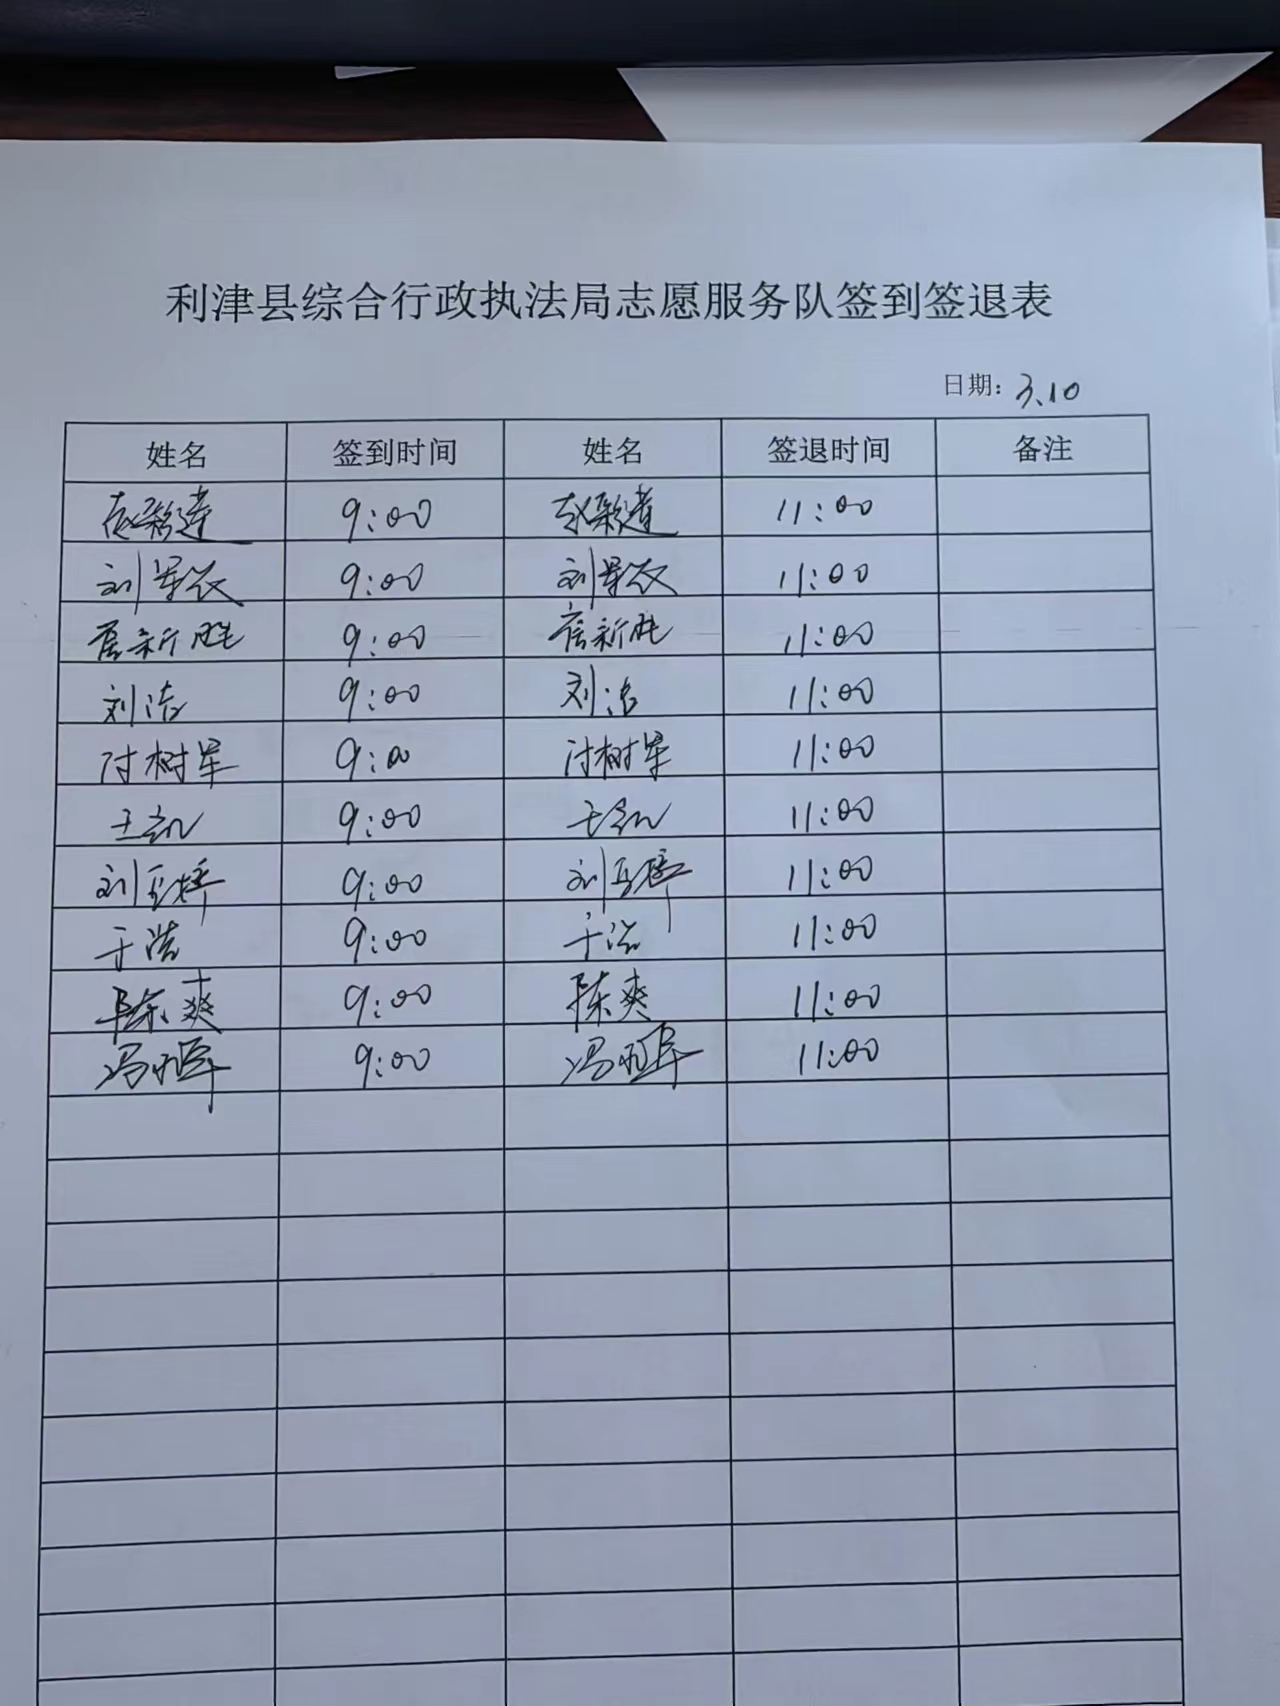 利津县综合行政执法局志愿服务队签到签退表
日期：3.10
姓名 签到时间 姓名 签退时间 备注
9:00 11:00
刘军 9:00 刘军 11:00
新胜 9:00 新胜 11:00
刘洁 9:00 刘洁 11:00
付树军 9:00 付树军 11:00
王凯 9:00 王凯 11:00
刘玉婷 9:00 刘玉婷 11:00
于浩 9:00 于浩 11:00
陈爽 9:00 陈爽 11:00
冯 9:00 冯 11:00